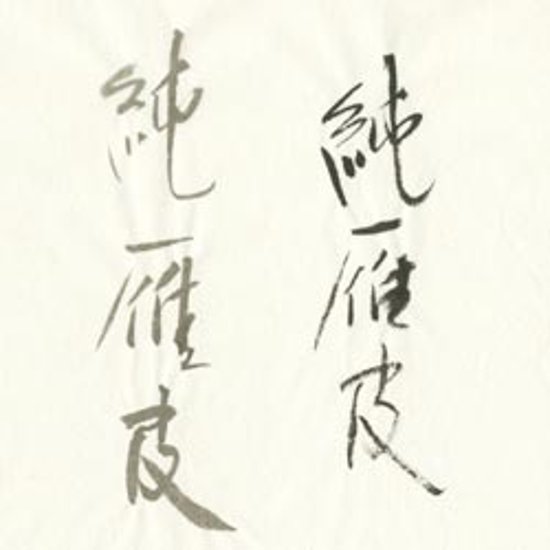 純雁皮
純雁皮